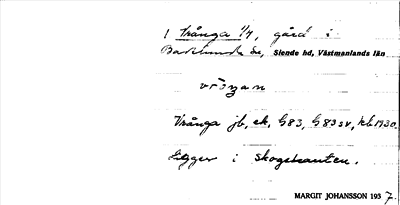 1 Vrånga 1/4, gård i
Badelunda sn, Siende hd, Västmanlands län
vrången
Vrånga jb, ek, G83, G83sv, kb 1930.
Ligger i skogskanten.
MARGIT JOHANSSON 1937.